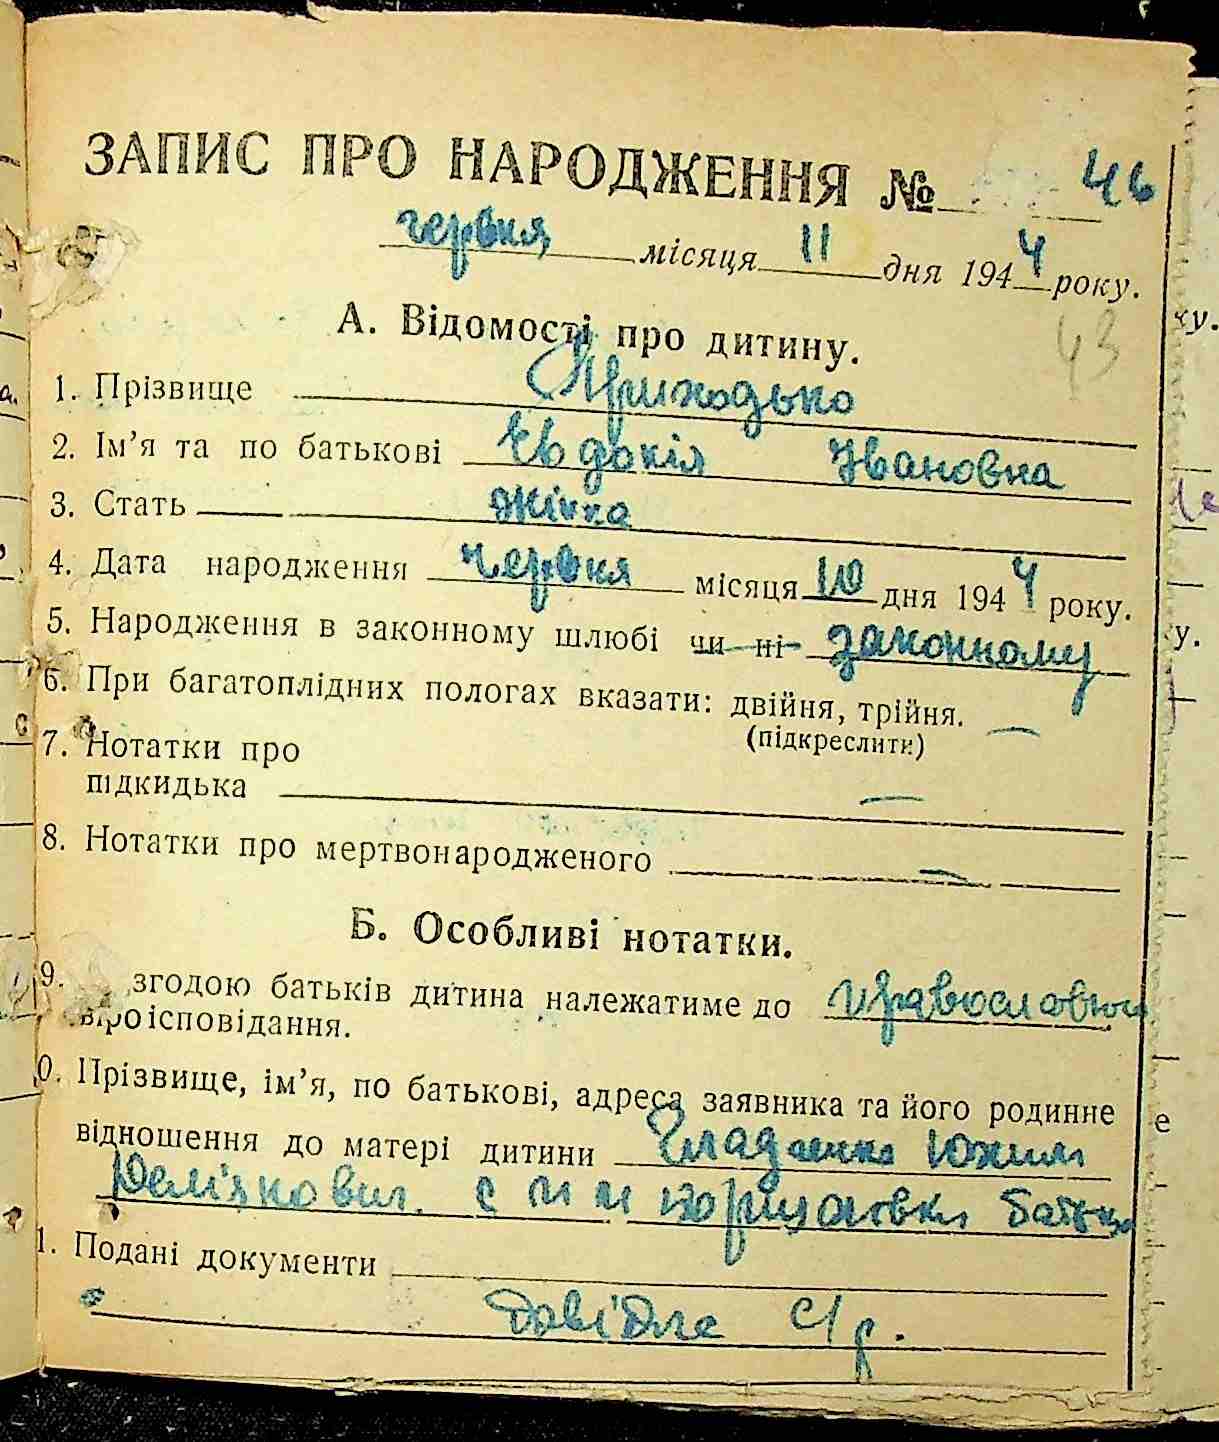 ЗАПИС ПРО НАРОДЖЕННЯ № 46
червня місяця 11 дня 1944 року.
43
А. Відомості про дитину.
1. Прізвище Приходько
2. Ім'я та по батькові Евдокія Івановна
3. Стать жінка
4. Дата народження червня місяця 10 дня 1944 року.
5. Народження в законному шлюбі чи ні законному
6. При багатоплідних пологах вказати: двійня, трійня. —
(підкреслити)
7. Нотатки про
підкидька —
8. Нотатки про мертвонародженого —
Б. Особливі нотатки.
9. згодою батьків дитина належатиме до православного
віроісповідання.
0. Прізвище, ім'я, по батькові, адреса заявника та його родинне
відношення до матері дитини Юхим
с батько
1. Подані документи
довідка с/р.